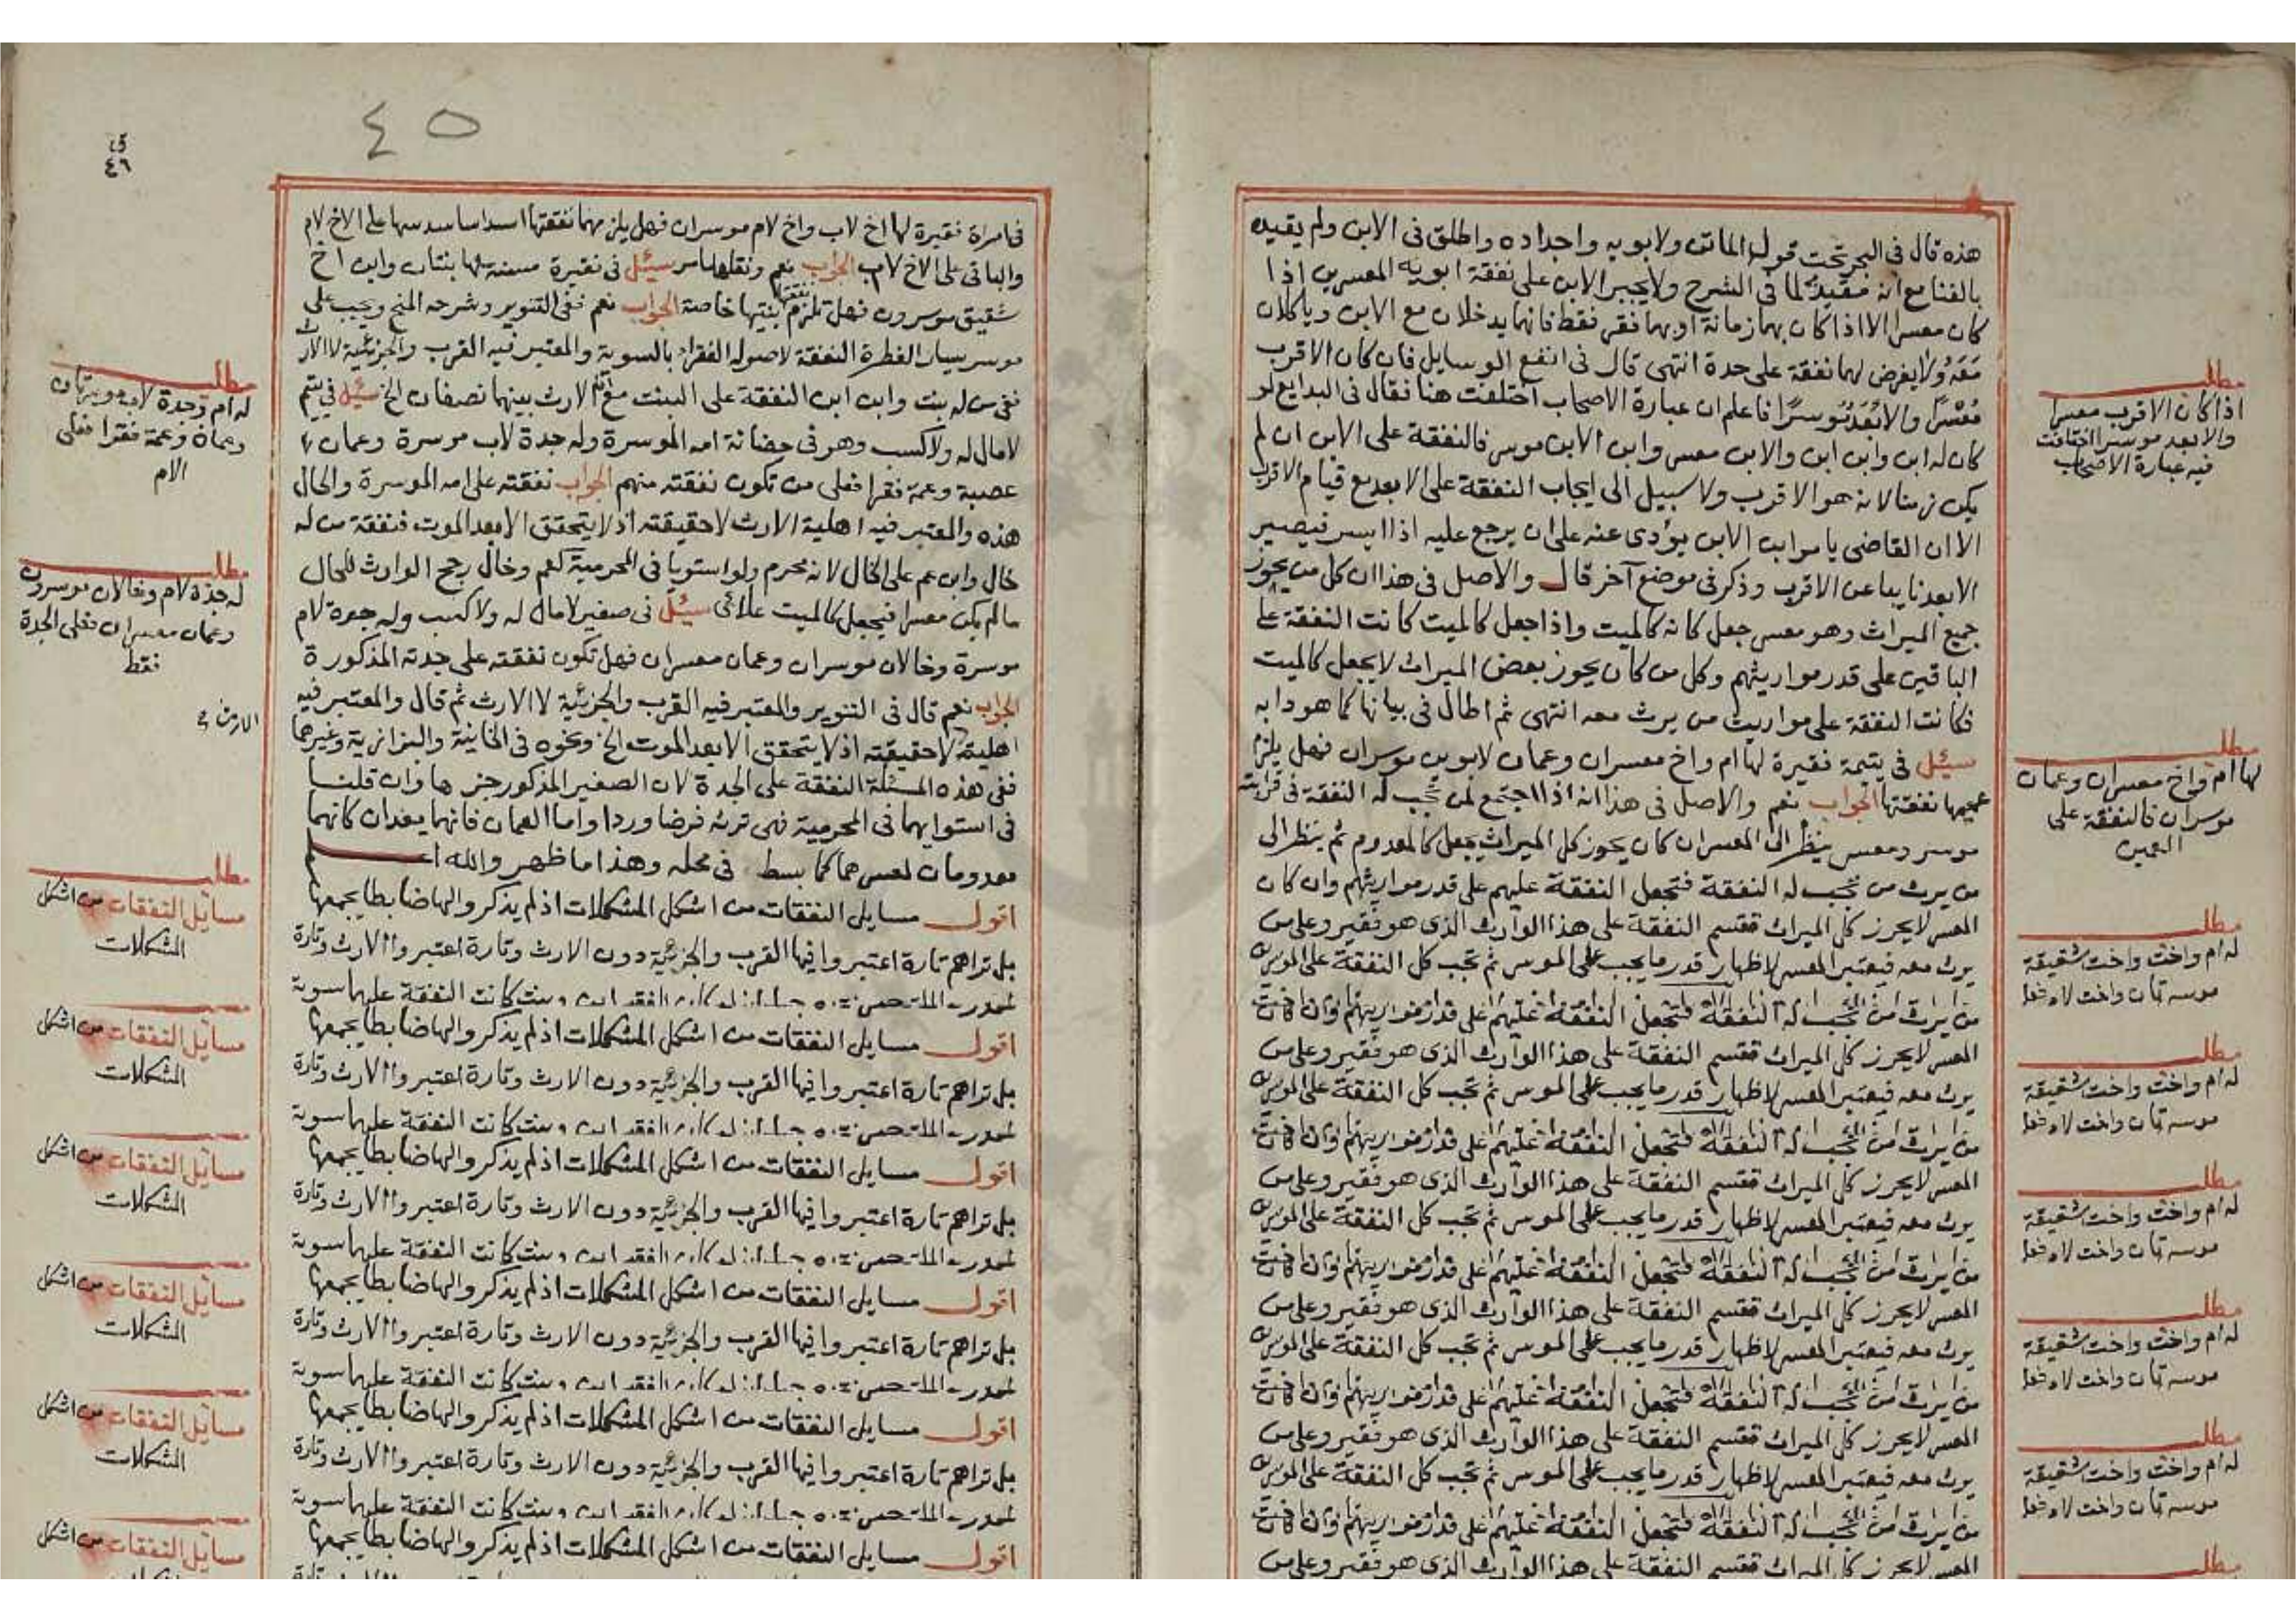 هذه قال في البحر تحت قول الماتن ولابويه واجداده واطلق في الابن ولم يقيده
بالغنا مع انه مقيد لما في الشرح ولا يجبر الابن على نفقة ابويه المعسرين اذا
كان معسرا الا اذا كان بهما زمانة او بهما فقر فقط فانهما يدخلان مع الابن وياكلان
معه ولا يفرض لهما نفقة على حدة انتهى قال في انفع الوسايل فان كان الاقرب
معسرا والابعد موسرا فاعلم ان عبارة الاصحاب اختلفت هنا فقال في البدايع لو
كان له ابن وابن ابن والابن معسر وابن الابن موسر فالنفقة على الابن ان لم
يكن زمنا لانه هو الاقرب ولا سبيل الى ايجاب النفقة على الابعد مع قيام الاقرب
الا ان القاضي يامر ابن الابن يؤدي عنه على ان يرجع عليه اذا ايسر فيصير
الابعد نايبا عن الاقرب وذكر في موضع آخر قال والاصل في هذا ان كل من يحوز
جميع الميراث وهو معسر جعل كانه كالميت واذا جعل كالميت كانت النفقة على
الباقين على قدر مواريثهم وكل من كان يحوز بعض الميراث لا يجعل كالميت
فكانت النفقة على مواريث من يرث معه انتهى ثم اطال في بيانها كما هو دابه
سئل في يتيمة فقيرة لها ام واخ معسران وعمان لابوين موسران فهل يلزم
عميها نفقتها الجواب نعم والاصل في هذا انه اذا اجتمع لمن تجب له النفقة في قرابته
موسر ومعسر ينظر الى المعسر ان كان يحوز كل الميراث يجعل كالمعدوم ثم ينظر الى
من يرث من تجب له النفقة فتجعل النفقة عليهم على قدر مواريثهم وان كان
المعسر لا يحرز كل الميراث فتقسم النفقة على هذا الوارث الذي هو فقير وعلى من
يرث معه فيعتبر المعسر لاظهار قدر ما يجب على الموسر ثم تجب كل النفقة على الموسرين
من يرث من تجب له النفقة فتجعل النفقة عليهم على قدر مواريثهم وان كان
المعسر لا يحرز كل الميراث فتقسم النفقة على هذا الوارث الذي هو فقير وعلى من
يرث معه فيعتبر المعسر لاظهار قدر ما يجب على الموسر ثم تجب كل النفقة على الموسرين
من يرث من تجب له النفقة فتجعل النفقة عليهم على قدر مواريثهم وان كان
المعسر لا يحرز كل الميراث فتقسم النفقة على هذا الوارث الذي هو فقير وعلى من
يرث معه فيعتبر المعسر لاظهار قدر ما يجب على الموسر ثم تجب كل النفقة على الموسرين
من يرث من تجب له النفقة فتجعل النفقة عليهم على قدر مواريثهم وان كان
المعسر لا يحرز كل الميراث فتقسم النفقة على هذا الوارث الذي هو فقير وعلى من
يرث معه فيعتبر المعسر لاظهار قدر ما يجب على الموسر ثم تجب كل النفقة على الموسرين
من يرث من تجب له النفقة فتجعل النفقة عليهم على قدر مواريثهم وان كان
المعسر لا يحرز كل الميراث فتقسم النفقة على هذا الوارث الذي هو فقير وعلى من
يرث معه فيعتبر المعسر لاظهار قدر ما يجب على الموسر ثم تجب كل النفقة على الموسرين
من يرث من تجب له النفقة فتجعل النفقة عليهم على قدر مواريثهم وان كان
المعسر لا يحرز كل الميراث فتقسم النفقة على هذا الوارث الذي هو فقير وعلى من
مطلب
اذا كان الاقرب معسرا
والابعد موسرا اختلفت
فيه عبارة الاصحاب
مطلب
لها ام واخ معسران وعمان
موسران فالنفقة على
العمين
مطلب
له ام واخت واخت شقيقة
موسرتان واخت لاب
مطلب
له ام واخت واخت شقيقة
موسرتان واخت لاب
مطلب
له ام واخت واخت شقيقة
موسرتان واخت لاب
مطلب
له ام واخت واخت شقيقة
موسرتان واخت لاب
مطلب
له ام واخت واخت شقيقة
موسرتان واخت لاب
مطلب
٤٥
ق
٤٦
في امراة فقيرة لها اخ لاب واخ لام موسران فهل يلزمهما نفقتها اسداسا سدسها على الاخ لام
والباقي على الاخ لاب الجواب نعم ونقلها مامر سئل في فقيرة مسنة لها بنتان وابن اخ
شقيق موسرون فهل تلزم نفقتها بنتيها خاصة الجواب نعم ففي التنوير وشرحه المنح ويجب على
موسر يسار الفطرة النفقة لاصوله الفقراء بالسوية والمعتبر فيه القرب والجزئية لا الارث
ففي من له بنت وابن ابن النفقة على البنت مع ان الارث بينهما نصفان الخ سئل في يتيم
لا مال له ولا كسب وهو في حضانة امه الموسرة وله جدة لاب موسرة وعمان
عصبة وعمة فقرا فعلى من تكون نفقته منهم الجواب نفقته على امه الموسرة والحال
هذه والمعتبر فيه اهلية الارث لا حقيقته اذ لا يتحقق الا بعد الموت فنفقة من له
خال وابن عم على الخال لانه محرم ولو استويا في المحرمية كعم وخال رجح الوارث للحال
مالم يكن معسرا فيجعل كالميت علائي سئل في صغير لا مال له ولا كسب وله جدة لام
موسرة وخالان موسران وعمان معسران فهل تكون نفقته على جدته المذكورة
الجواب نعم قال في التنوير والمعتبر فيه القرب والجزئية لا الارث ثم قال والمعتبر فيه
اهلية لا حقيقته اذ لا يتحقق الا بعد الموت الخ ونحوه في الخانية والبزازية وغيرها
ففي هذه المسئلة النفقة على الجدة لان الصغير المذكور جزءها وان قلنا
في استوايهما في المحرمية فهي ترث فرضا وردا واما العمان فانهما يعدان كانهما
معدومان لعسرهما كما بسط في محله وهذا ما ظهر والله اعلم
اقول مسايل النفقات من اشكل المشكلات اذ لم يذكروا لها ضابطا يجمعها
بل تراهم تارة اعتبروا فيها القرب والجزئية دون الارث وتارة اعتبروا الارث وتارة
وبنت كانت النفقة عليهما سوية
اقول مسايل النفقات من اشكل المشكلات اذ لم يذكروا لها ضابطا يجمعها
بل تراهم تارة اعتبروا فيها القرب والجزئية دون الارث وتارة اعتبروا الارث وتارة
وبنت كانت النفقة عليهما سوية
اقول مسايل النفقات من اشكل المشكلات اذ لم يذكروا لها ضابطا يجمعها
بل تراهم تارة اعتبروا فيها القرب والجزئية دون الارث وتارة اعتبروا الارث وتارة
وبنت كانت النفقة عليهما سوية
اقول مسايل النفقات من اشكل المشكلات اذ لم يذكروا لها ضابطا يجمعها
بل تراهم تارة اعتبروا فيها القرب والجزئية دون الارث وتارة اعتبروا الارث وتارة
وبنت كانت النفقة عليهما سوية
اقول مسايل النفقات من اشكل المشكلات اذ لم يذكروا لها ضابطا يجمعها
بل تراهم تارة اعتبروا فيها القرب والجزئية دون الارث وتارة اعتبروا الارث وتارة
وبنت كانت النفقة عليهما سوية
اقول مسايل النفقات من اشكل المشكلات اذ لم يذكروا لها ضابطا يجمعها
مطلب
له ام وجدة لاب موسرتان
وعمان وعمة فقرا فعلى
الام
مطلب
له جدة لام وخالان موسرون
وعمان معسران فعلى الجدة
فقط
الارث
مطلب
مسايل النفقات من اشكل
المشكلات
مسايل النفقات من اشكل
المشكلات
مسايل النفقات من اشكل
المشكلات
مسايل النفقات من اشكل
المشكلات
مسايل النفقات من اشكل
المشكلات
مسايل النفقات من اشكل